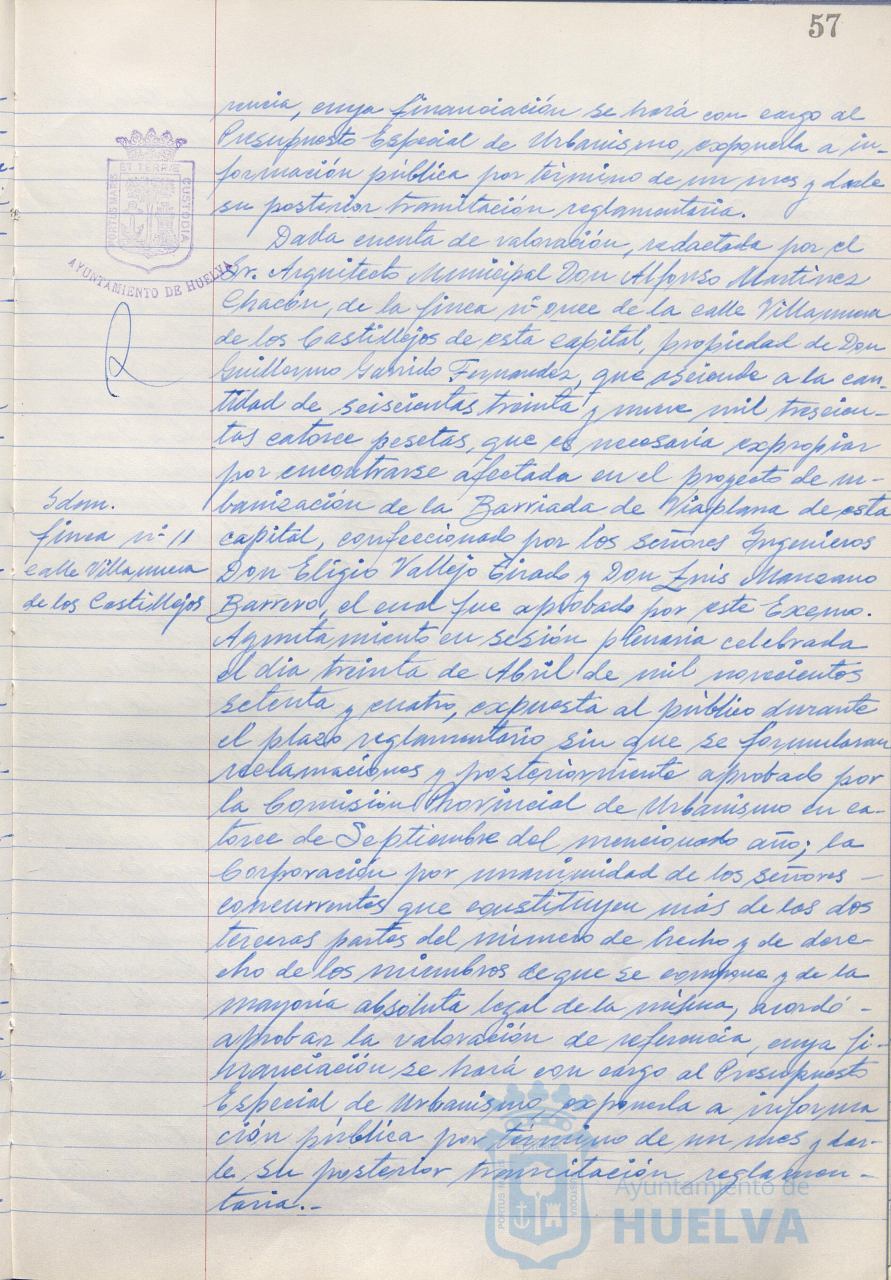 57
rencia, cuya financiación se hará con cargo al
Presupuesto Especial de Urbanismo, exponerla a in-
formación pública por término de un mes y darle
su posterior tramitación reglamentaria.
PORTUS MARIS
ET TERRE
CUSTODIA
AYUNTAMIENTO DE HUELVA
Dada cuenta de valoración, redactada por el
Sr. Arquitecto Municipal Don Alfonso Martinez
Chacón, de la finca nº once de la calle Villanueva
de los Castillejos de esta capital, propiedad de Don
Guillermo Garrido Fernandez, que asciende a la can-
tidad de seiscientas treinta y nueve mil trescien-
tas catorce pesetas, que es necesaria expropiar
por encontrarse afectada en el proyecto de ur-
banización de la Barriada de Viaplana de esta
Idem.
finca nº 11
calle Villanueva
de los Castillejos
capital, confeccionado por los señores Ingenieros
Don Eligio Vallejo Tirado y Don Luis Manzano
Barrero, el cual fue aprobado por este Excmo.
Ayuntamiento en sesión plenaria celebrada
el dia treinta de Abril de mil novecientos
setenta y cuatro, expuesta al público durante
el plazo reglamentario sin que se formularan
reclamaciones y posteriormente aprobado por
la Comisión Provincial de Urbanismo en ca-
torce de Septiembre del mencionado año; la
Corporación por unanimidad de los señores -
concurrentes que constituyen más de las dos
terceras partes del número de hecho y de dere-
cho de los miembros de que se compone y de la
mayoría absoluta legal de la misma, acordó -
aprobar la valoración de referencia, cuya fi-
nanciación se hará con cargo al Presupuesto
Especial de Urbanismo, exponerla a informa
ción pública por término de un mes y dar-
le su posterior tramitación reglamen-
taria.-
Ayuntamiento de
HUELVA